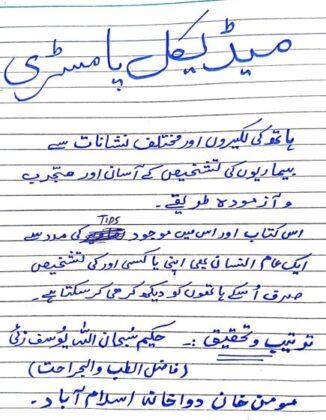 میڈیکل پامسٹری
ہاتھ کی لکیروں اور مختلف نشانات سے
بیماریوں کی تشخیص کے آسان اور مجرب
و آزمودہ طریقے۔
اس کتاب اور اس میں موجود TIPS کی مدد سے
ایک عام انسان بھی اپنی یا کسی اور کی تشخیص
صرف اُسکے ہاتھوں کو دیکھ کر ہی کرسکتا ہے۔
ترتیب و تحقیق :۔ حکیم سُبحان اللہ یُوسف زئی
(فاضل الطب والجراحت)
مومن خان دواخانہ اسلام آباد۔